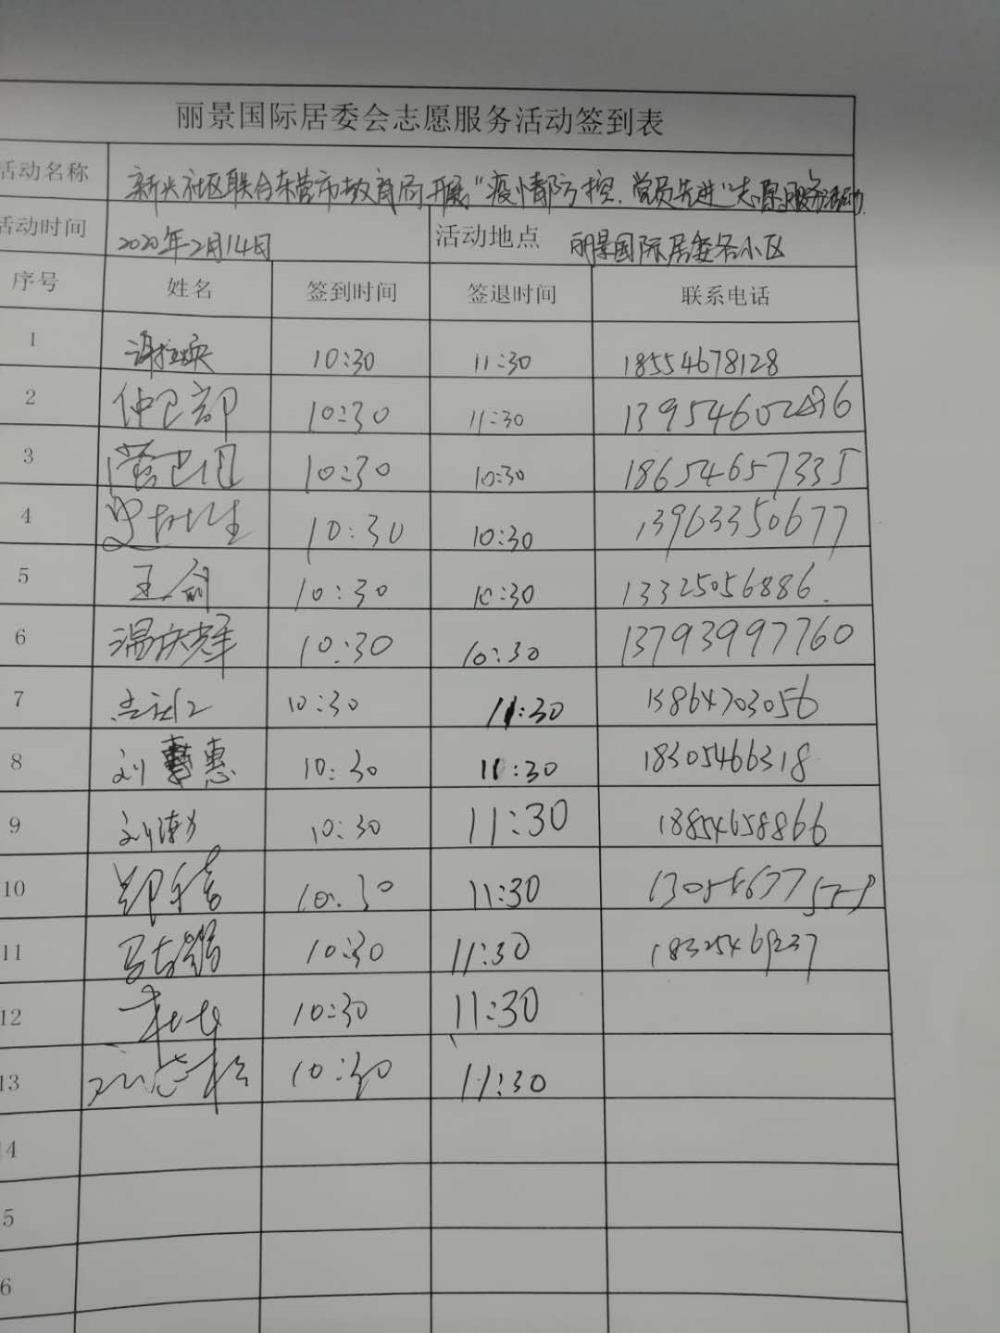 丽景国际居委会志愿服务活动签到表
活动名称 新兴社区联合东营市教育局开展"疫情防控.党员先进"志愿服务活动.
活动时间 2020年2月14日 活动地点 丽景国际居委各小区
序号 姓名 签到时间 签退时间 联系电话
1 10:30 11:30 18554678128
2 10:30 11:30
3 10:30 10:30 18654657335
4 10:30 10:30 13963350677
5 10:30 10:30 13325056886.
6 温庆辉 10:30 10:30 13793997760
7 10:30 11:30 13864703056
8 刘 惠 10:30 11:30 18305466318
9 10:30 11:30 18854658866
10 10:30 11:30
11 10:30 11:30 18325469237
12 10:30 11:30
13 10:30 11:30
4
5
6